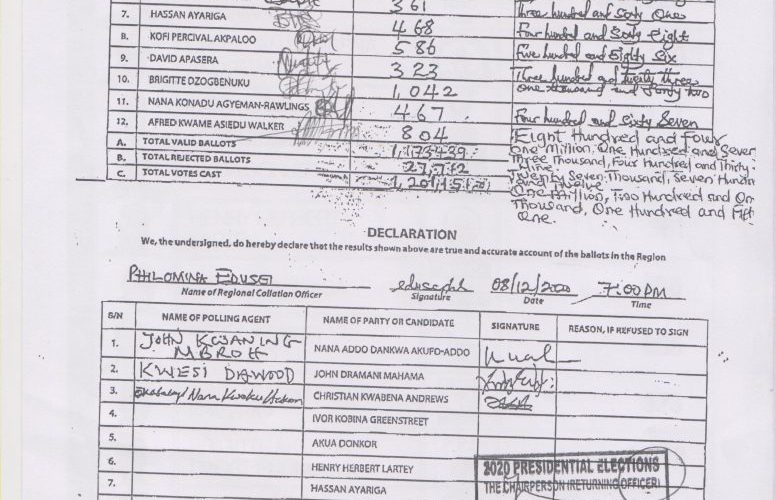 361 Three hundred and Sixty One
7. HASSAN AYARIGA 468 Four hundred and Sixty Eight
8. KOFI PERCIVAL AKPALOO 586 Five hundred and Eighty Six
9. DAVID APASERA 323 Three hundred and Twenty three
10. BRIGITTE DZOGBENUKU 1,042 One thousand and Forty two
11. NANA KONADU AGYEMAN-RAWLINGS 467 Four hundred and Sixty Seven
12. AFRED KWAME ASIEDU WALKER 804 Eight Hundred and Four
A. TOTAL VALID BALLOTS 1,173439 One Million, One Hundred and Seven
Three Thousand, Four Hundred and Thirty
Nine
B. TOTAL REJECTED BALLOTS 27,712 Twenty Seven Thousand, Seven Hundr
and Twelve
C. TOTAL VOTES CAST 1,201,151 One Million, Two Hundred and On
Thousand, One Hundred and Fift
One.
DECLARATION
We, the undersigned, do hereby declare that the results shown above are true and accurate account of the ballots in the Region
PHILOMINA EDUSEI eduseiph 08/12/2020 7:00PM
Name of Regional Collation Officer Signature Date Time
S/N NAME OF POLLING AGENT NAME OF PARTY OR CANDIDATE SIGNATURE REASON, IF REFUSED TO SIGN
1. JOHN NANA ADDO DANKWA AKUFO-ADDO
2. KWESI DAWOOD JOHN DRAMANI MAHAMA
3. Nana Kwaku CHRISTIAN KWABENA ANDREWS
4. IVOR KOBINA GREENSTREET
5. AKUA DONKOR
6. HENRY HERBERT LARTEY
7. HASSAN AYARIGA
2020 PRESIDENTIAL ELECTIONS
THE CHAIRPERSON (RETURNING OFFICER)